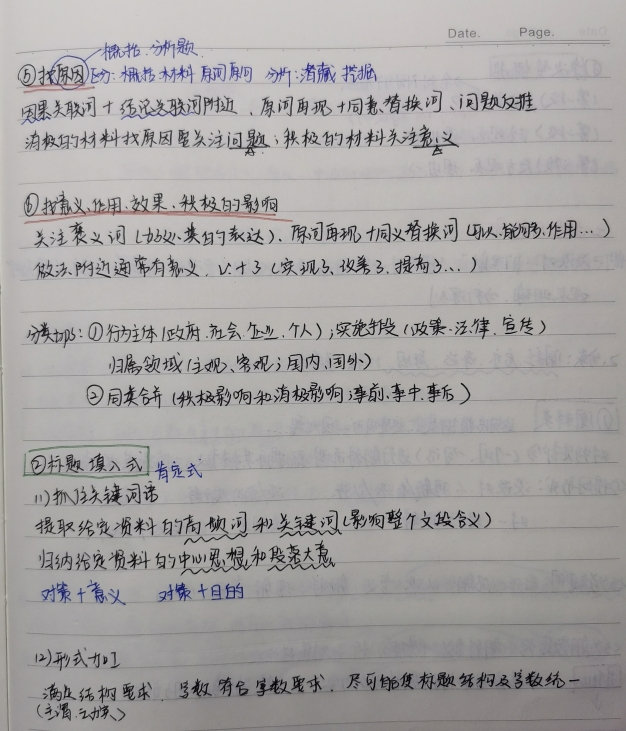 Date. Page.
概括、分析题
⑤找原因 区分:概括材料 原词原词 分析:潜藏 挖掘
因果关联词+结论关联词附近、原词再现+同意替换词、问题反推
消极的材料找原因要关注问题;积极的材料关注意义
⑥找意义、作用、效果、积极的影响
关注褒义词(好的表达)、原词再现+同义替换词(可以、能够、作用…)
做法附近通常有意义、V+了(实现了、改善了、提高了…)
分类tips:①行为主体(政府、社会、企业、个人);实施手段(政策、法律、宣传)
归属领域(主观、客观;国内、国外)
②同类合并(积极影响和消极影响;事前、事中、事后)
②标题填入式 肯定式
(1)抓住关键词语
提取给定资料的高频词和关键词(影响整个文段含义)
归纳给定资料的中心思想和段落大意
对策+意义 对策+目的
(2)形式加工
满足结构要求、字数符合字数要求、尽可能使标题结构及字数统一
(主谓、动宾)